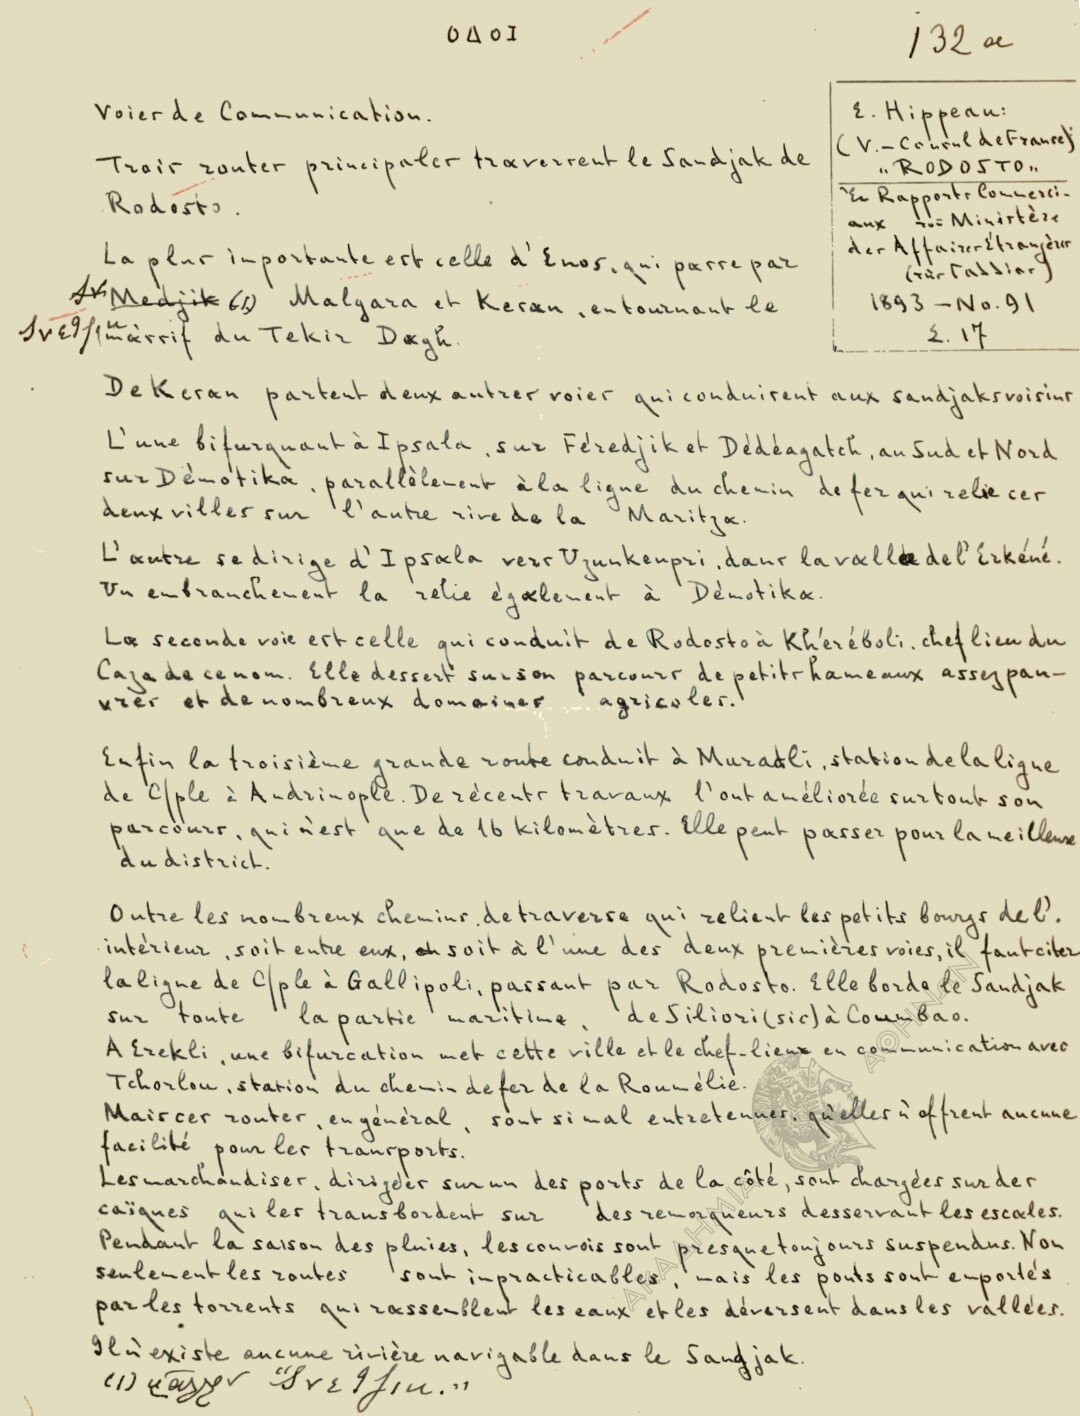 ΟΔΟΙ
132 α
E. Hippeau:
(V.-Consul de France)
"RODOSTO"
Rapports Commerci-
aux Ministère
des Affaires Étrangères
1893 - No. 91
Σ. 17
Voies de Communication.
Trois routes principales traversent le Sandjak de
Rodosto.
La plus importante est celle d'Enos, qui passe par
Medjik (1) Malgara et Kesan, entournant le
massif du Tekir Dagh.
De Kesan partent deux autres voies qui conduisent aux sandjaks voisins
L'une bifurquant à Ipsala, sur Féredjik et Dédéagatch, au Sud et Nord
sur Démotika, parallèlement à la ligne du chemin de fer qui relie ces
deux villes sur l'autre rive de la Maritza.
L'autre se dirige d'Ipsala vers Uzunkeupri, dans la vallée de l'Erkéné.
Un embranchement la relie également à Démotika.
La seconde voie est celle qui conduit de Rodosto à Khéréboli, chef lieu du
Caza de ce nom. Elle dessert sur son parcours de petits hameaux assez pau-
vres et de nombreux domaines agricoles.
Enfin la troisième grande route conduit à Muradli, station de la ligne
de C/ple à Andrinople. De récents travaux l'ont améliorée sur tout son
parcours, qui n'est que de 16 kilomètres. Elle peut passer pour la meilleure
du district.
Outre les nombreux chemins, de traverse qui relient les petits bourgs de l'
intérieur, soit entre eux, soit à l'une des deux premières voies, il faut citer
la ligne de C/ple à Gallipoli, passant par Rodosto. Elle borde le Sandjak
sur toute la partie maritime, de Siliori (sic) à Coumbao.
A Erekli, une bifurcation met cette ville et le chef-lieux en communication avec
Tchorlou, station du chemin de fer de la Roumélie.
Mais ces routes, en général, sont si mal entretenues, qu'elles n'offrent aucune
facilité pour les transports.
Les marchandises, dirigées sur un des ports de la côté, sont chargées sur des
caïques qui les transbordent sur des remorqueurs desservant les escales.
Pendant la saison des pluies, les convois sont presque toujours suspendus. Non
seulement les routes sont inpracticables, mais les ponts sont emportés
par les torrents qui rassemblent les eaux et les déversent dans les vallées.
Il n'existe aucune rivière navigable dans le Sandjak.
(1)
ΑΚΑΔΗΜΙΑ ΑΘΗΝΩΝ